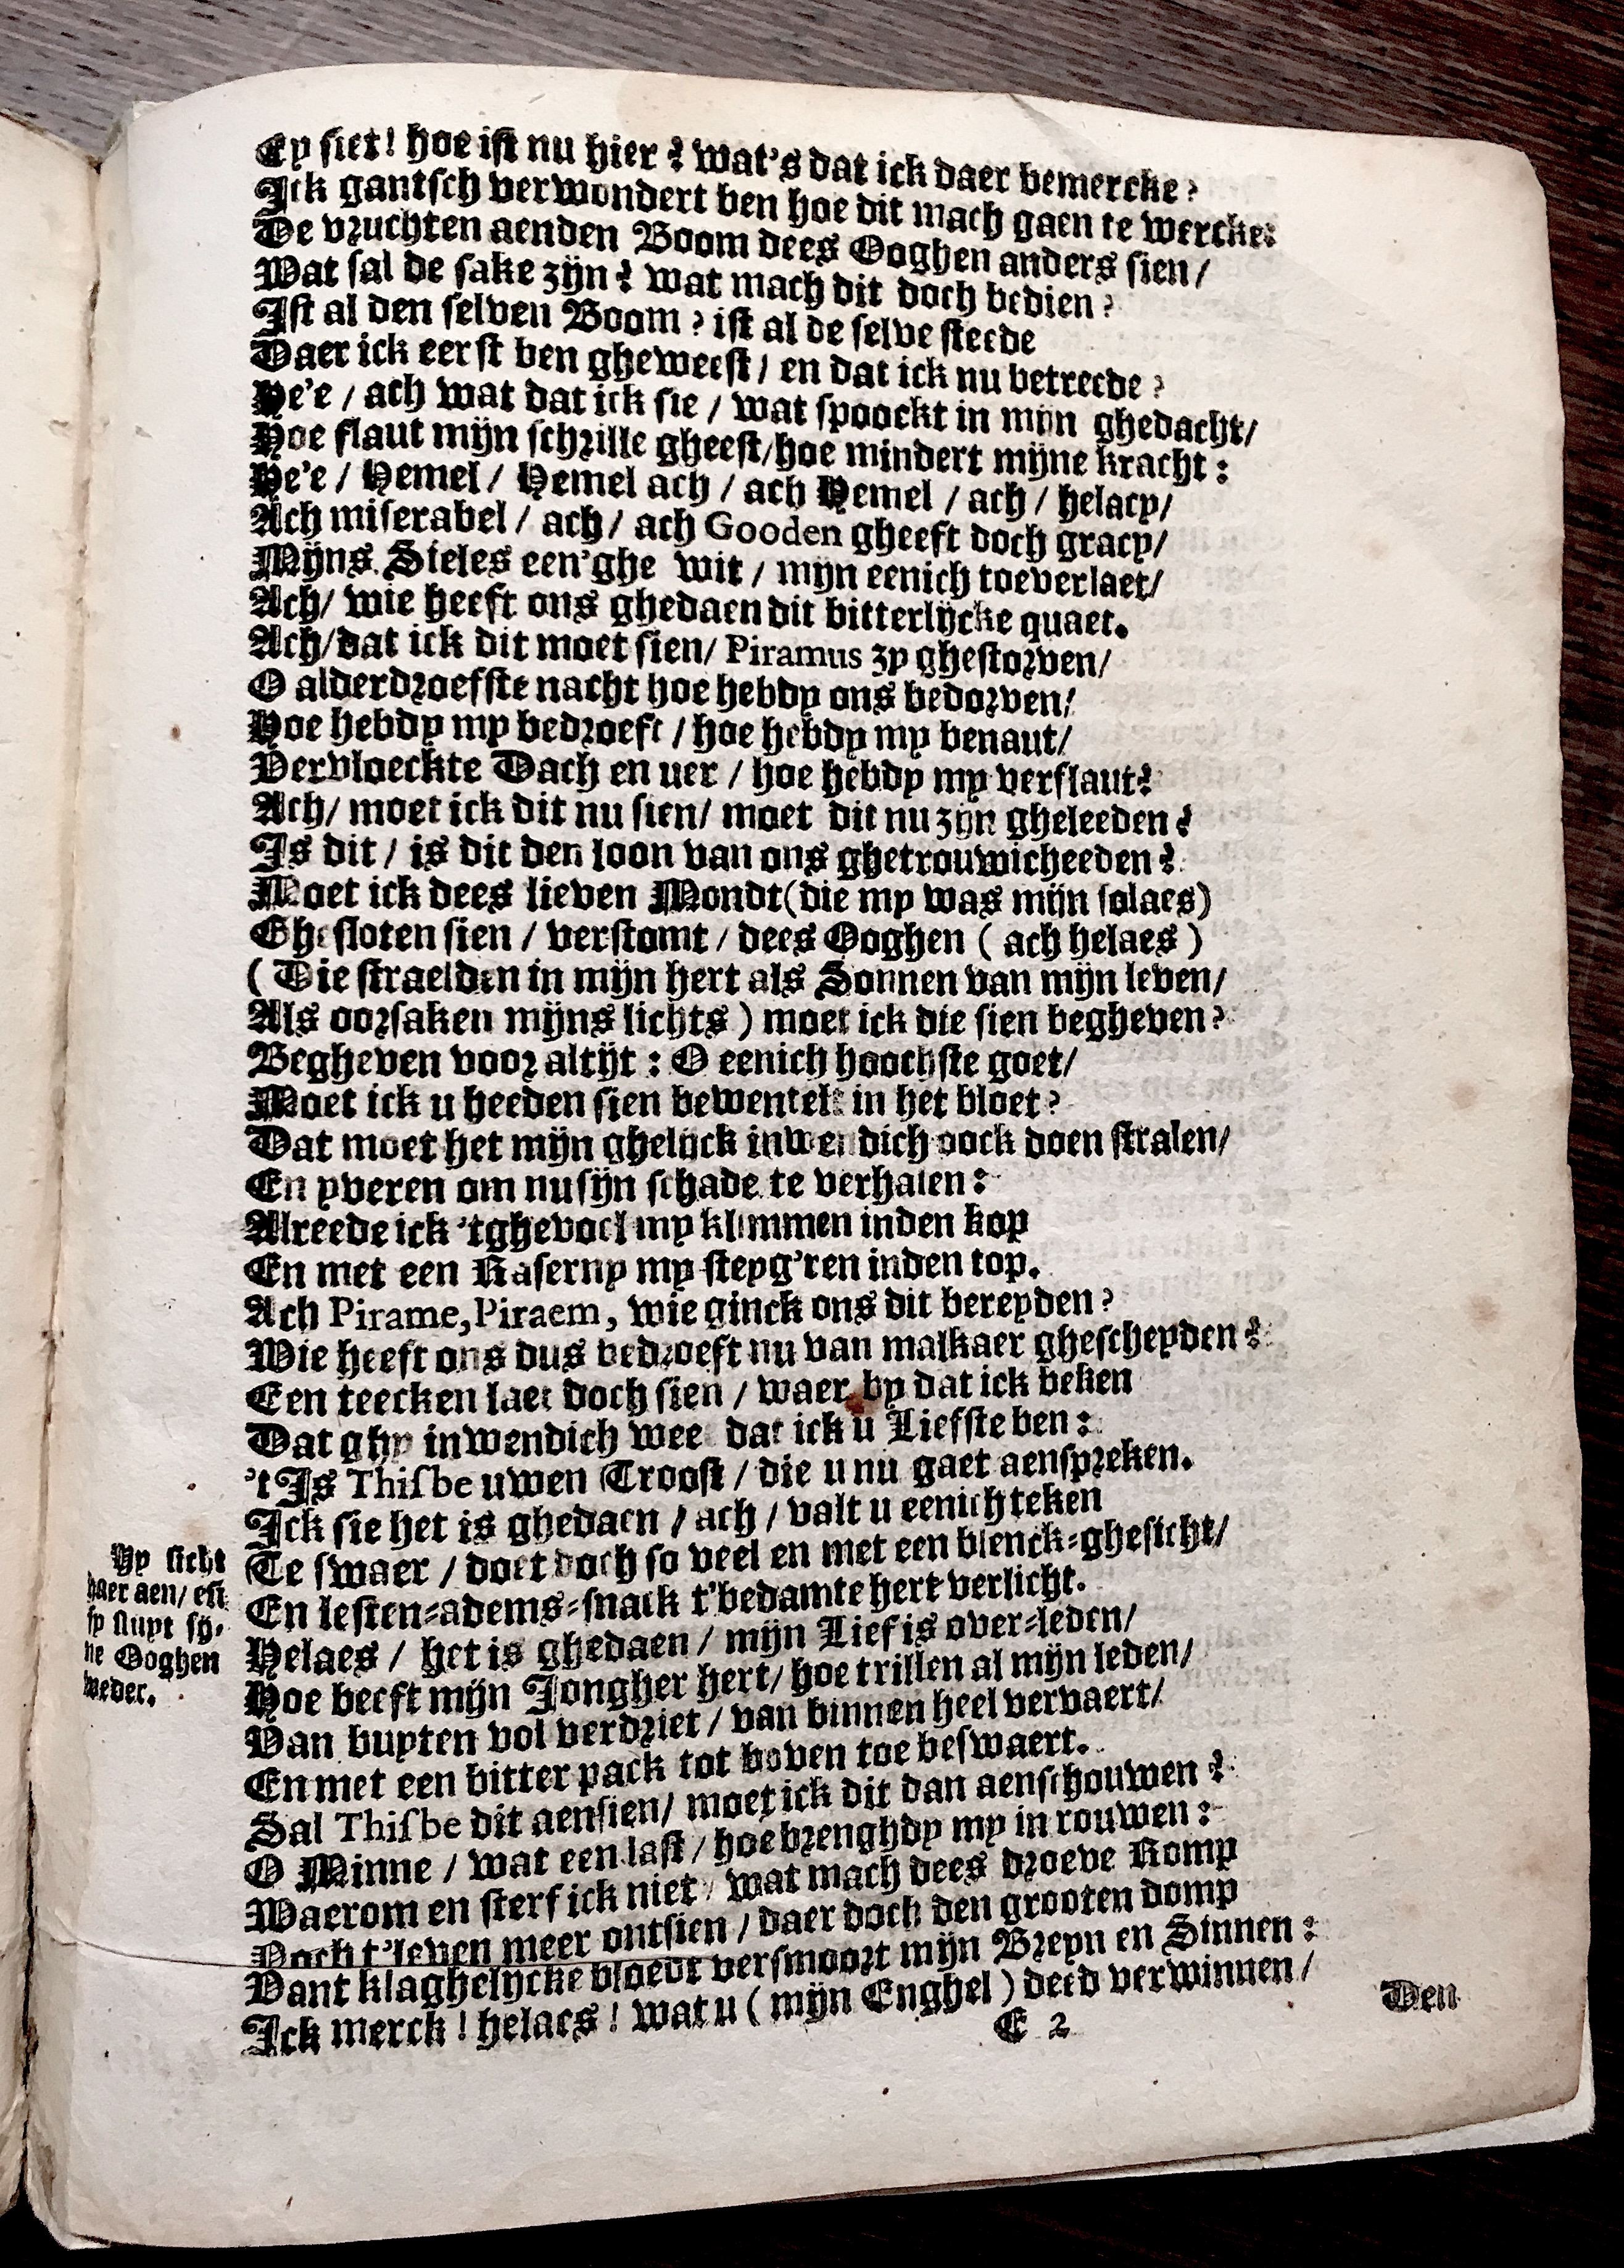 Ey siet! hoe ist nu hier? wat's dat ick daer bemercke?
Ick gantsch verwondert ben hoe dit mach gaen te wercke:
De vruchten aenden Boom dees Ooghen anders sien/
Wat sal de sake zijn? wat mach dit doch bedien?
Ist al den selven Boom? ist al de selve steede
Daer ick eerst ben gheweest/ en dat ick nu betreede?
He'e / ach wat dat ick sie / wat spoockt in mijn ghedacht/
Hoe flaut mijn schrille gheest/hoe mindert mijne kracht:
He'e / Hemel / Hemel ach / ach Hemel / ach / helacy/
Ach miserabel / ach / ach Gooden gheeft doch gracy/
Mijns Sieles een'ghe wit / mijn eenich toeverlaet/
Ach/ wie heeft ons ghedaen dit bitterlijcke quaet.
Ach/dat ick dit moet sien/ Piramus zy ghestorven/
O alderdroefste nacht hoe hebdy ons bedorven/
Hoe hebdy my bedroeft / hoe hebdy my benaut/
Vervloeckte Dach en uer / hoe hebdy my verflaut?
Ach/ moet ick dit nu sien/ moet dit nu zijn gheleeden?
Is dit / is dit den loon van ons ghetrouwicheeden?
Moet ick dees lieven Mondt(die my was mijn solaes)
Ghesloten sien / verstomt / dees Ooghen ( ach helaes )
( Die straelden in mijn hert als Sonnen van mijn leven/
Als oorsaken mijns lichts ) moet ick die sien begheven?
Begheven voor altijt : O eenich hoochste goet/
Moet ick u heeden sien bewentelt in het bloet?
Dat moet het mijn ghelijck inwendich oock doen stralen/
En yveren om nu sijn schade te verhalen:
Alreede ick 'tghevoel my klimmen inden kop
En met een Raserny my steyg'ren inden top.
Ach Pirame, Piraem, wie ginck ons dit bereyden?
Wie heeft ons dus bedroeft nu van malkaer ghescheyden?
Een teecken laet doch sien / waer by dat ick beken
Dat ghy inwendich weet dat ick u Liefste ben:
't Is Thisbe uwen Troost / die u nu gaet aenspreken.
Ick sie het is ghedaen / ach / valt u eenich teken
Te swaer / doet doch so veel en met een blenck-ghesicht/
En lesten-adems-snack t'bedamte hert verlicht.
Hy sicht
haer aen/ en
sy sluyt sij-
ne Ooghen
weder.
Helaes / het is ghedaen / mijn Lief is over-leden/
Hoe beeft mijn Jongher hert/ hoe trillen al mijn leden/
Van buyten vol verdriet / van binnen heel vervaert/
En met een bitter pack tot boven toe beswaert.
Sal Thisbe dit aensien/ moet ick dit dan aenschouwen?
O Minne / wat een last / hoe brenghdy my in rouwen:
Waerom en sterf ick niet / wat mach dees droeve Romp
Noch t'leven meer ontsien / daer doch den grooten domp
Vant klaghelijcke bloedt versmoort mijn Breyn en Sinnen:
Ick merck! helaes! wat u ( mijn Enghel ) deed verwinnen/
E 2
Den